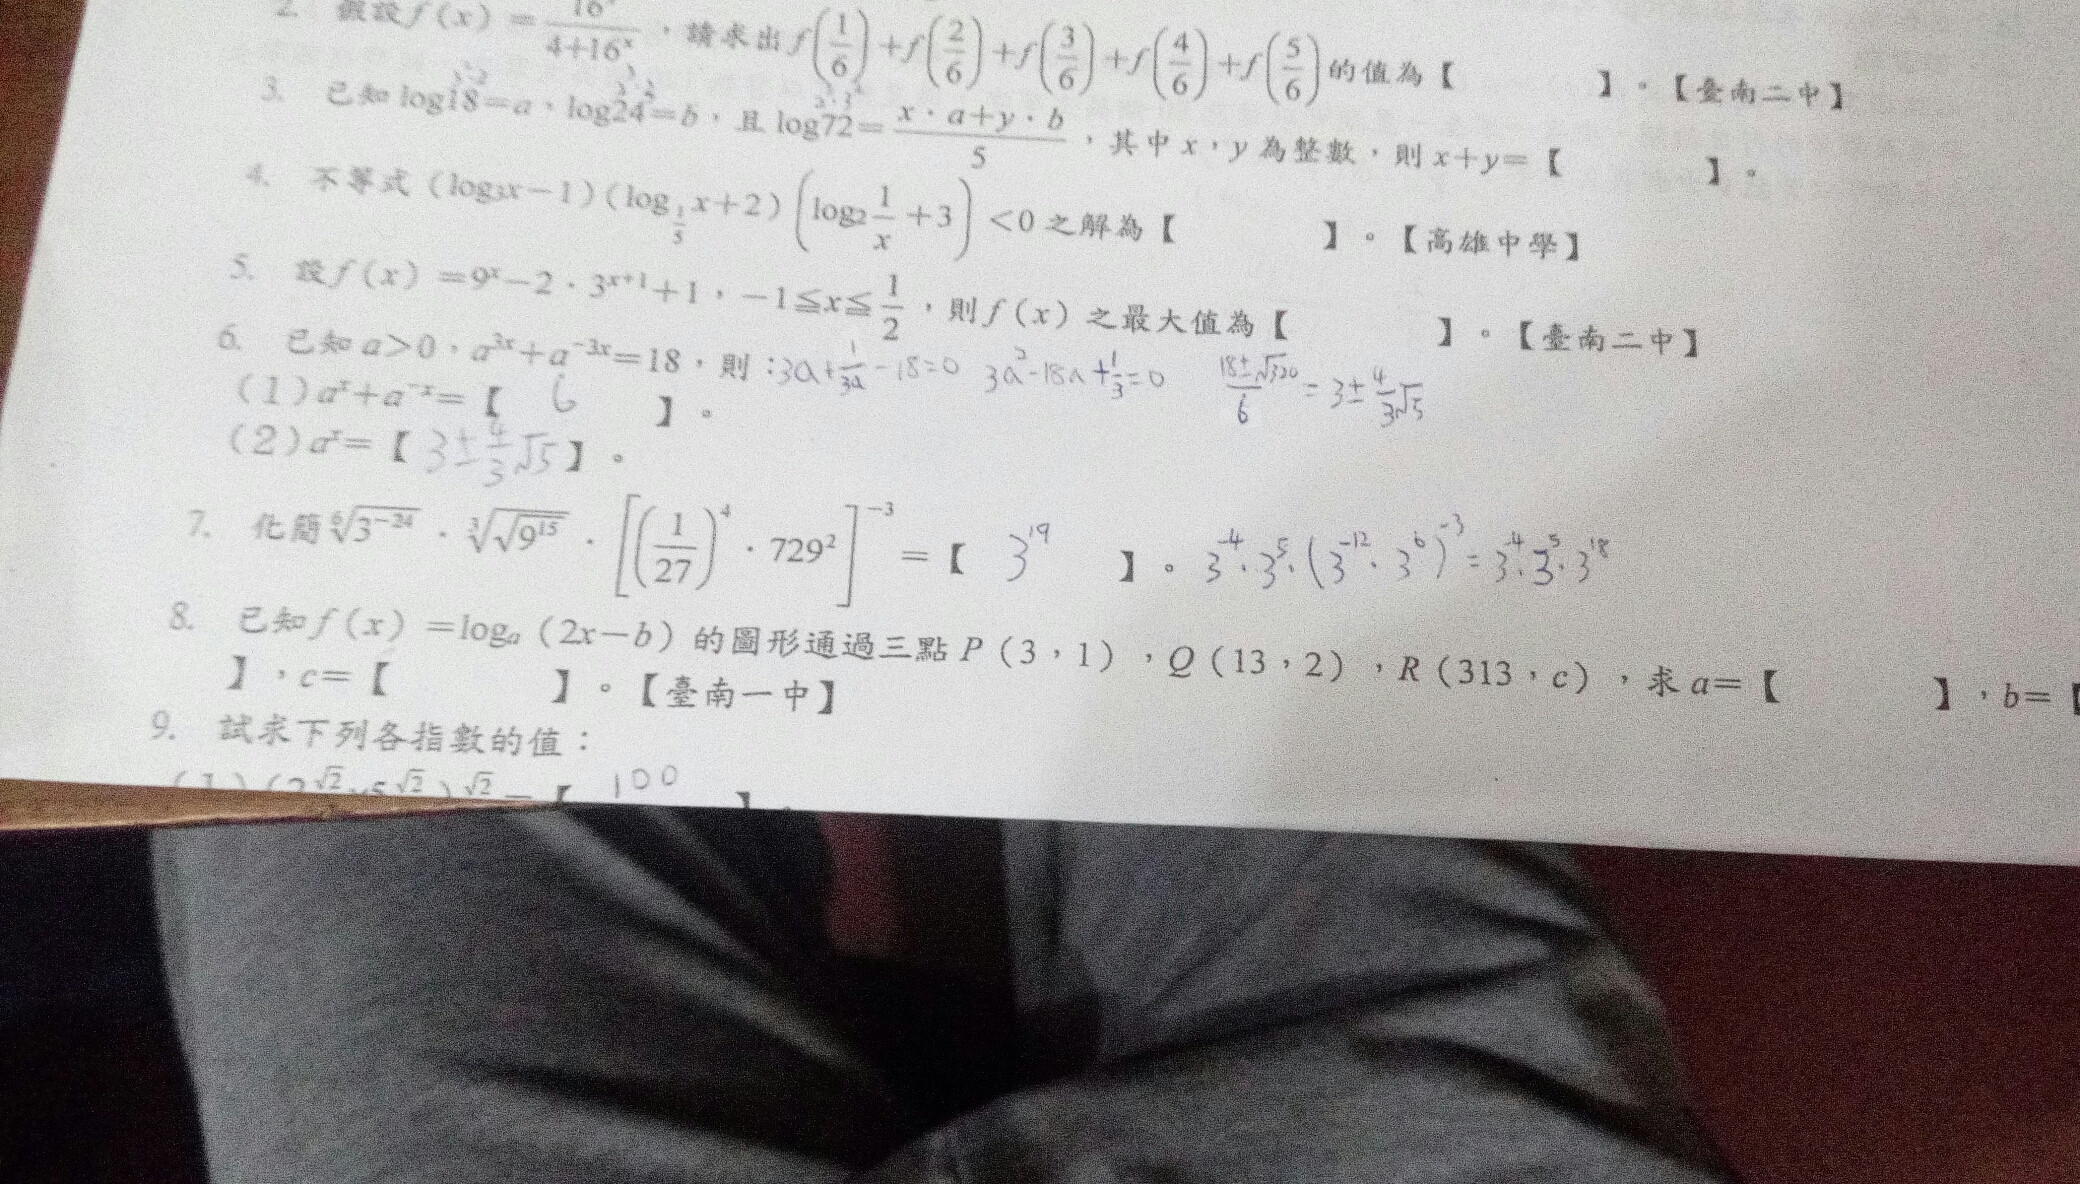 2. 假設 f(x) = 16ˣ/(4+16ˣ)，請求出 f(1/6)+f(2/6)+f(3/6)+f(4/6)+f(5/6) 的值為【 】。【臺南二中】
3. 已知 log18=a，log24=b，且 log72=(x·a+y·b)/5，其中 x，y 為整數，則 x+y=【 】。
4. 不等式 (log₃x−1)(log_{1/5}x+2)(log₂(1/x)+3)<0 之解為【 】。【高雄中學】
5. 設 f(x)=9ˣ−2·3ˣ⁺¹+1，−1≦x≦1/2，則 f(x) 之最大值為【 】。【臺南二中】
6. 已知 a>0，a³ˣ+a⁻³ˣ=18，則： 3a+1/3a −18=0 3a²−18a+1/3=0 (18±√320)/6 = 3±4/3√5
(1) aˣ+a⁻ˣ=【 6 】。
(2) aˣ=【 3±4/3√5 】。
7. 化簡 ⁶√(3⁻²⁴)·³√(√(9¹⁵))·[(1/27)⁴·729²]⁻³=【 3¹⁹ 】。 3⁻⁴·3⁵·(3⁻¹²·3⁶)⁻³=3⁻⁴·3⁵·3¹⁸
8. 已知 f(x)=logₐ(2x−b) 的圖形通過三點 P(3，1)，Q(13，2)，R(313，c)，求 a=【 】，b=【
】，c=【 】。【臺南一中】
9. 試求下列各指數的值：
(1) (2^√2×5^√2)^√2=【 100 】。